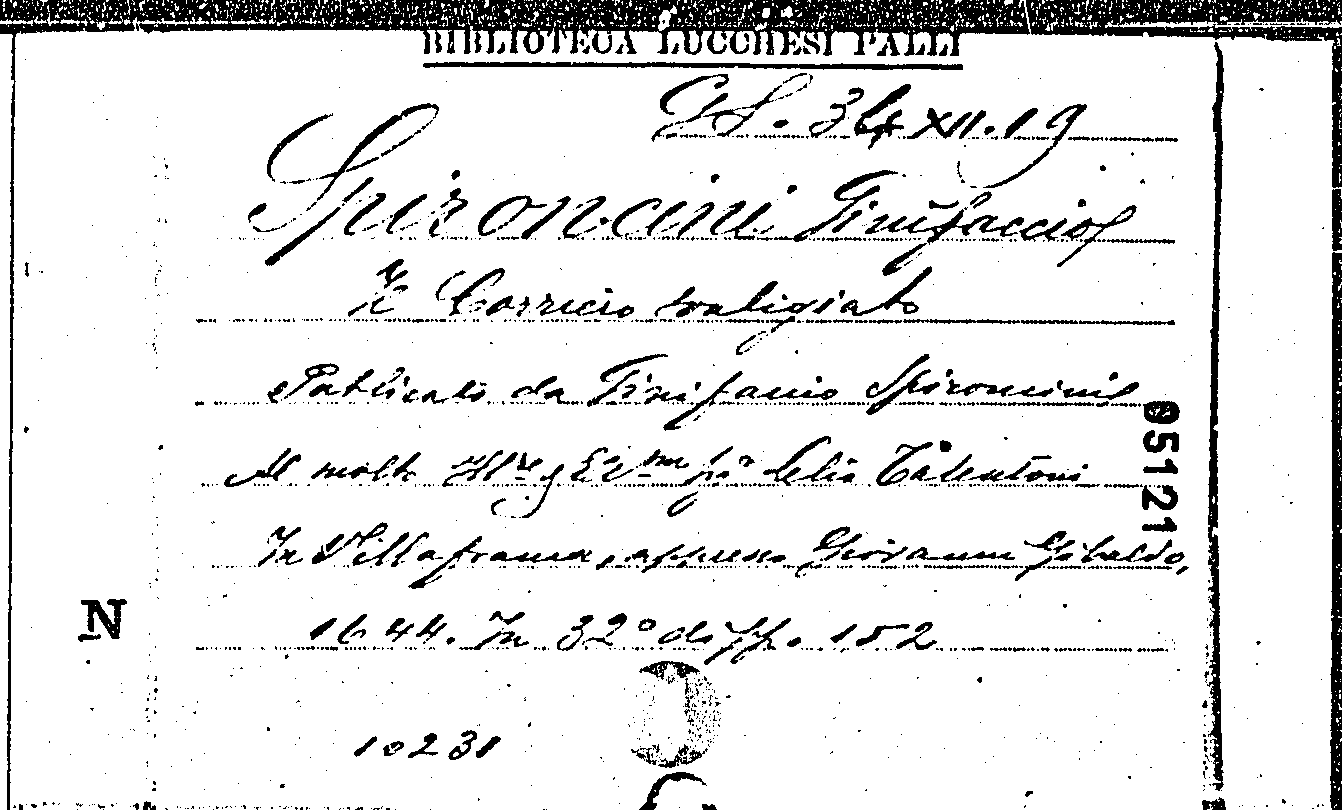 BIBLIOTECA LUCCHESI PALLI
XII.19
Spironcini Ginifaccio
Il Corriero svaligiato
Publicato da Ginifaccio Spironcini
Al molto Ill.re Celio Talentoni
In Villafranca, appresso Giovanni Gibaldo,
1644. In 32° di pp. 152
N
10231
05121